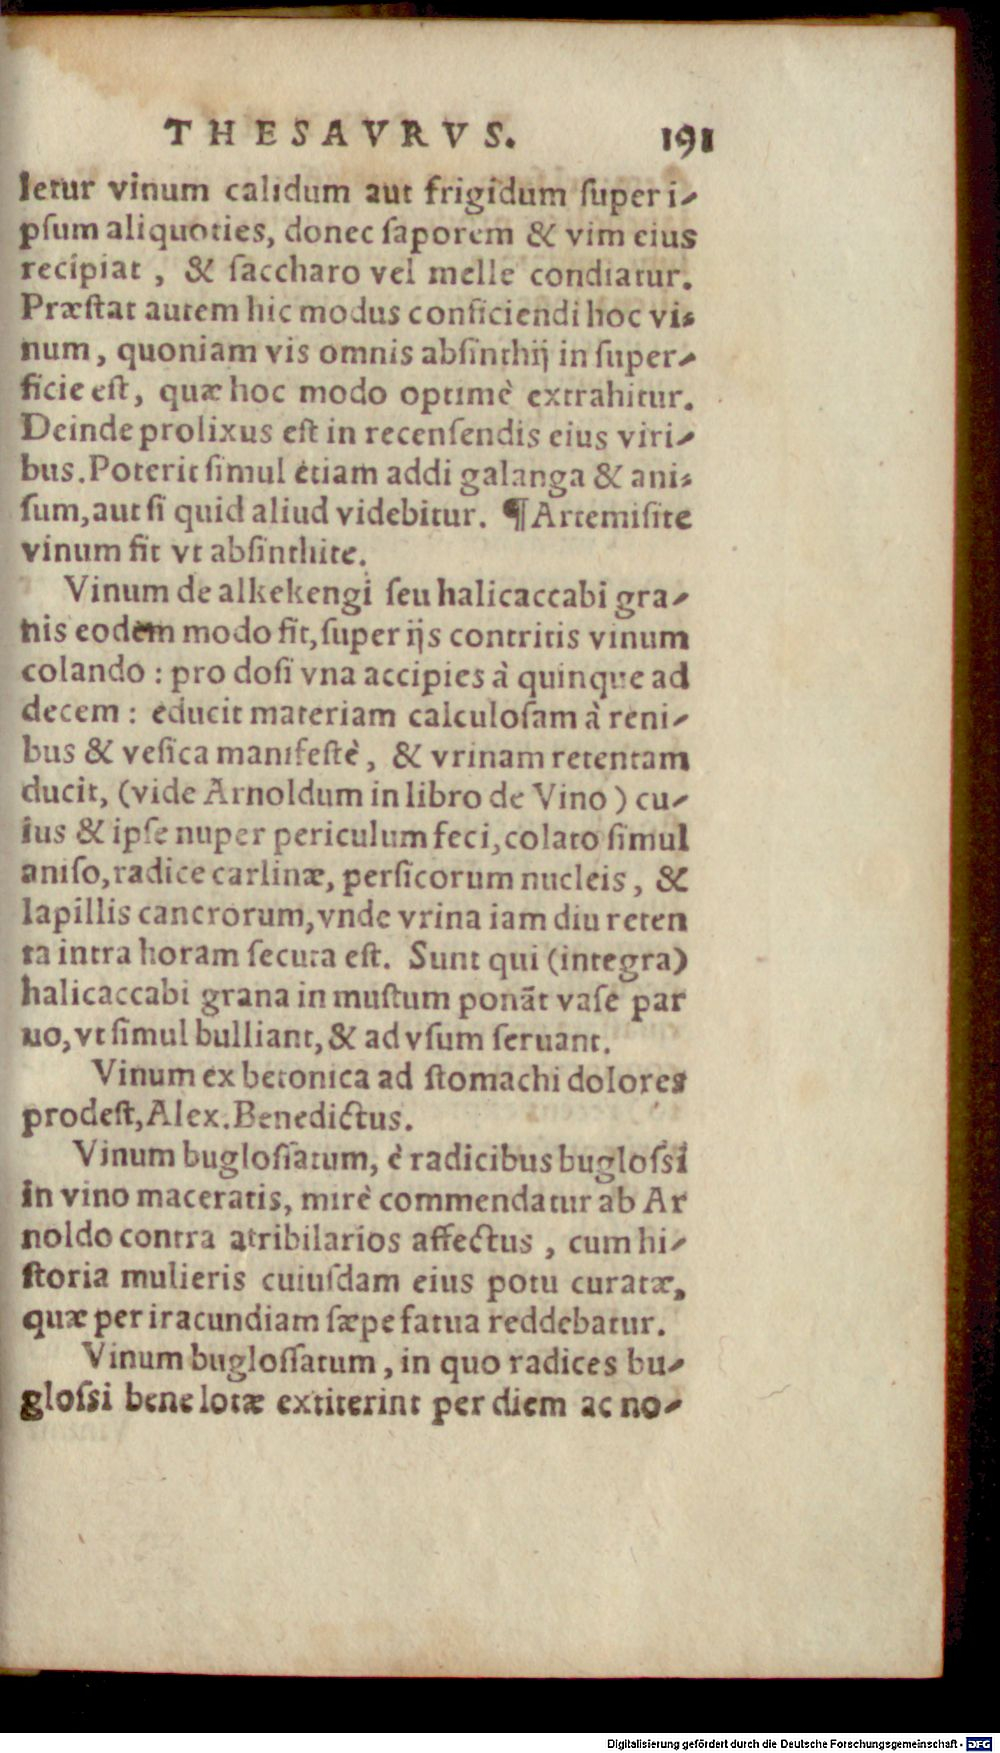 THESAVRVS. 191
letur vinum calidum aut frigidum ſuper i-
pſum aliquoties, donec ſaporem & vim eius
recipiat, & ſaccharo vel melle condiatur.
Præſtat autem hic modus conficiendi hoc vi-
num, quoniam vis omnis abſinthij in ſuper-
ficie eſt, quæ hoc modo optimè extrahitur.
Deinde prolixus eſt in recenſendis eius viri-
bus. Poterit ſimul etiam addi galanga & ani-
ſum, aut ſi quid aliud videbitur. ¶ Artemiſite
vinum fit vt abſinthite.
Vinum de alkekengi ſeu halicaccabi gra-
nis eodem modo fit, ſuper ijs contritis vinum
colando: pro doſi vna accipies à quinque ad
decem: educit materiam calculoſam à reni-
bus & veſica manifeſtè, & vrinam retentam
ducit, (vide Arnoldum in libro de Vino) cu-
ius & ipſe nuper periculum feci, colato ſimul
aniſo, radice carlinæ, perſicorum nucleis, &
lapillis cancrorum, vnde vrina iam diu reten
ta intra horam ſecuta eſt. Sunt qui (integra)
halicaccabi grana in muſtum ponãt vaſe par
uo, vt ſimul bulliant, & ad vſum ſeruant.
Vinum ex betonica ad ſtomachi dolores
prodeſt, Alex. Benedictus.
Vinum bugloſſatum, è radicibus bugloſſi
in vino maceratis, mirè commendatur ab Ar
noldo contra atribilarios affectus, cum hi-
ſtoria mulieris cuiuſdam eius potu curatæ,
quæ per iracundiam ſæpe fatua reddebatur.
Vinum bugloſſatum, in quo radices bu-
gloſſi bene lotæ extiterint per diem ac no-
Digitalisierung gefördert durch die Deutsche Forschungsgemeinschaft - DFG